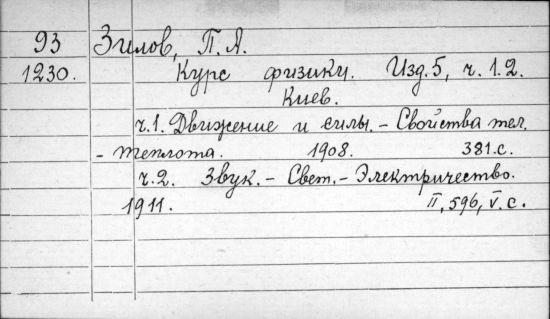 93 Зилов, П. А.
1230. Курс физики. Изд. 5, ч. 1.2.
Киев.
ч.1. Движение и силы. - Свойства тел.
- теплота. 1908. 381.с.
ч.2. Звук. - Свет. - Электричество.
1911. II, 596, V. с.